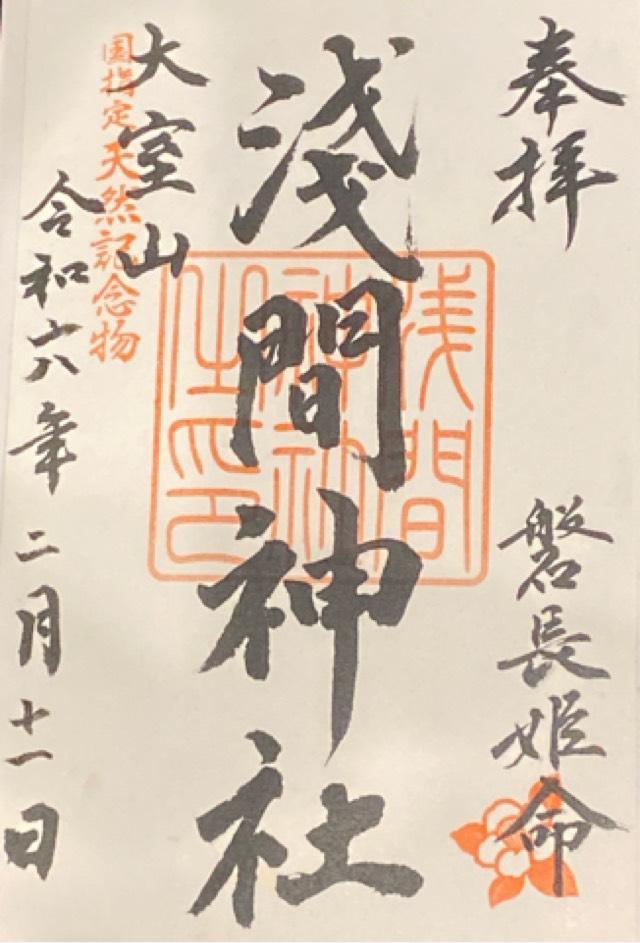 奉拝
磐長姫命
浅間神社
浅間
神社
之印
大室山
国指定天然記念物
令和六年二月十一日